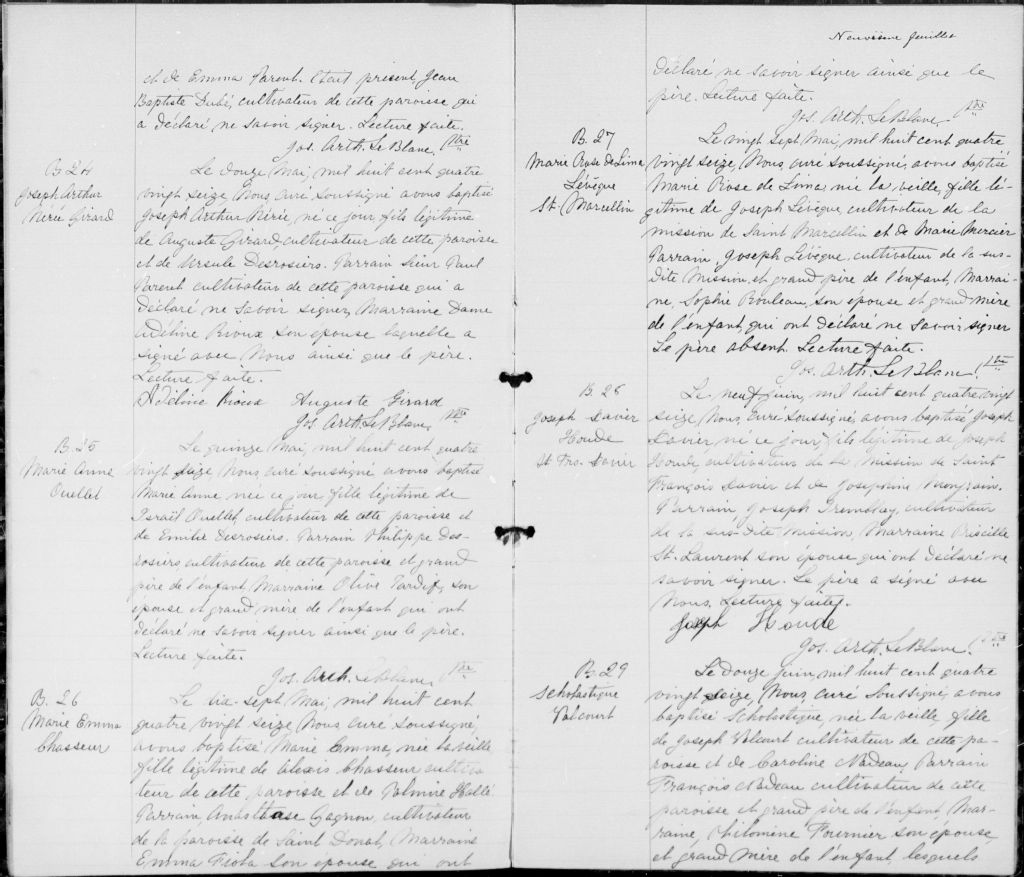 et de Emma Parent. Etait présent, Jean
Baptiste Dubé, cultivateur de cette paroisse qui
a déclaré ne savoir signer. Lecture faite.
Jos. Arth. LeBlanc, Ptre
B. 24
Joseph Arthur
Nérée Girard
Le douze Mai, mil huit cent quatre
vingt seize, Nous curé soussigné avons baptisé
Joseph Arthur Nérée, né ce jour, fils légitime
de Auguste Girard, cultivateur de cette paroisse
et de Ursule Desrosiers. Parrain Sieur Paul
Parent cultivateur de cette paroisse qui a
déclaré ne savoir signer, Marraine Dame
Adéline Rioux son épouse laquelle a
signé avec Nous ainsi que le père.
Lecture faite.
Adéline Rioux Auguste Girard
Jos. Arth. LeBlanc, Ptre
B. 25
Marie Anne
Ouellet
Le quinze Mai, mil huit cent quatre
vingt seize, Nous curé soussigné avons baptisé
Marie Anne née ce jour fille légitime de
Israël Ouellet, cultivateur de cette paroisse et
de Emilie Desrosiers. Parrain Philippe Des-
rosiers, cultivateur de cette paroisse et grand
père de l'enfant, Marraine Olive Tardif, son
épouse et grand mère de l'enfant qui ont
déclaré ne savoir signer ainsi que le père.
Lecture faite.
Jos. Arth. LeBlanc, Ptre
B. 26
Marie Emma
Chasseur
Le dix-sept Mai, mil huit cent
quatre vingt seize, Nous curé soussigné,
avons baptisé Marie Emma, née la veille
fille légitime de Alexis Chasseur cultiva-
teur de cette paroisse et de Palmire Hallé
Parrain Anasthase Gagnon, cultivateur
de la paroisse de Saint Donat, Marraine
Emma Fiola son épouse qui ont
Neuvième feuillet
déclaré ne savoir signer ainsi que le
père. Lecture faite.
Jos. Arth. LeBlanc, Ptre
B. 27
Marie Rose de Lima
Lévêque
St. Marcellin
Le vingt sept Mai, mil huit cent quatre
vingt seize, Nous, curé soussigné, avons baptisé
Marie Rose de Lima, née la veille, fille lé-
gitime de Joseph Lévêque, cultivateur de la
mission de Saint Marcellin et de Marie Mercier
Parrain, Joseph Lévêque, cultivateur de la sus-
dite Mission, et grand père de l'enfant, Marrai-
ne, Sophie Rouleau, son épouse et grand mère
de l'enfant, qui ont déclaré ne savoir signer
Le père absent. Lecture faite.
Jos. Arth. LeBlanc, Ptre
B. 28
Joseph Xavier
Houde
St. Frs. Xavier
Le neuf juin, mil huit cent quatre vingt
seize, Nous, curé soussigné, avons baptisé Joseph
Xavier, né ce jour, fils légitime de Joseph
Houde, cultivateur de la Mission de Saint
François Xavier et de Joséphine Mongrain.
Parrain Joseph Tremblay, cultivateur
de la sus-dite Mission, Marraine Priscille
St. Laurent son épouse qui ont déclaré ne
savoir signer. Le père a signé avec
Nous. Lecture faite.
Joseph Houde
Jos. Arth. LeBlanc, Ptre
B. 29
Scholastique
Valcourt
Le douze juin, mil huit cent quatre
vingt seize, Nous, curé soussigné, avons
baptisé Scholastique, née la veille fille
de Joseph Valcourt cultivateur de cette pa-
roisse et de Caroline Nadeau, Parrain
François Nadeau cultivateur de cette
paroisse et grand père de l'enfant, Mar-
raine, Philomène Fournier son épouse,
et grand mère de l'enfant, lesquels